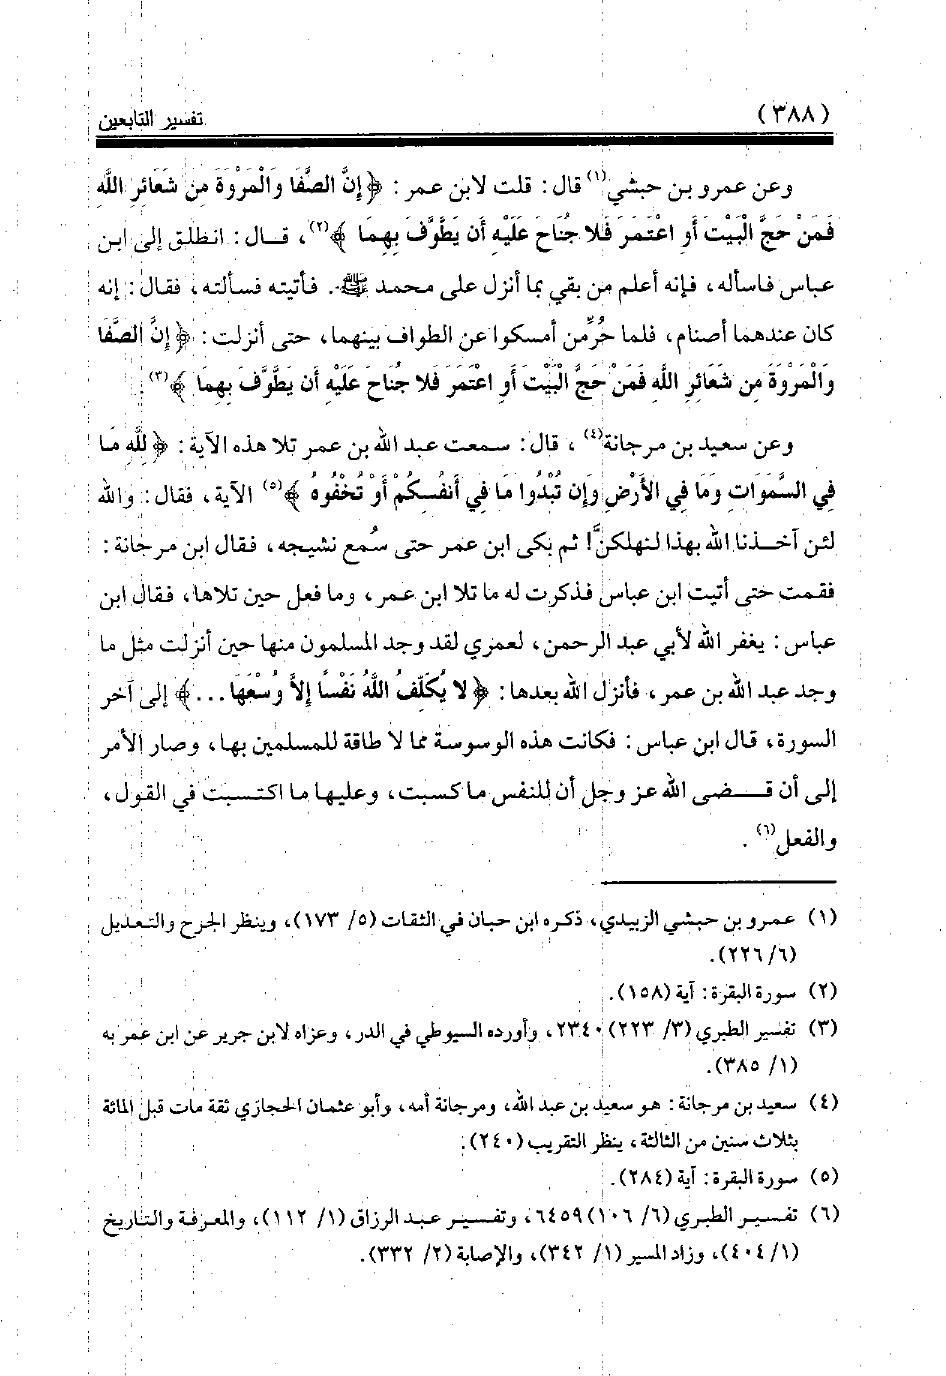 (٣٨٨)
تفسير التابعين
وعن عمرو بن حبشي(١) قال: قلت لابن عمر: ﴿إِنَّ الصَّفَا وَالْمَرْوَةَ مِن شَعَائِرِ اللَّهِ
فَمَنْ حَجَّ الْبَيْتَ أَوِ اعْتَمَرَ فَلا جُنَاحَ عَلَيْهِ أَن يَطَّوَّفَ بِهِمَا﴾(٢)، قال: انطلق إلى ابن
عباس فاسأله، فإنه أعلم من بقي بما أنزل على محمد ﷺ. فأتيته فسألته، فقال: إنه
كان عندهما أصنام، فلما حُرِّمن أمسكوا عن الطواف بينهما، حتى أنزلت: ﴿إِنَّ الصَّفَا
وَالْمَرْوَةَ مِن شَعَائِرِ اللَّهِ فَمَنْ حَجَّ الْبَيْتَ أَوِ اعْتَمَرَ فَلا جُنَاحَ عَلَيْهِ أَن يَطَّوَّفَ بِهِمَا﴾(٣).
وعن سعيد بن مرجانة(٤)، قال: سمعت عبد الله بن عمر تلا هذه الآية: ﴿لِلَّهِ مَا
فِي السَّمَوَاتِ وَمَا فِي الأَرْضِ وَإِن تُبْدُوا مَا فِي أَنفُسِكُمْ أَوْ تُخْفُوهُ﴾(٥) الآية، فقال: والله
لئن آخذنا الله بهذا لنهلكنَّ! ثم بكى ابن عمر حتى سُمع نشيجه، فقال ابن مرجانة:
فقمت حتى أتيت ابن عباس فذكرت له ما تلا ابن عمر، وما فعل حين تلاها، فقال ابن
عباس: يغفر الله لأبي عبد الرحمن، لعمري لقد وجد المسلمون منها حين أنزلت مثل ما
وجد عبد الله بن عمر، فأنزل الله بعدها: ﴿لا يُكَلِّفُ اللَّهُ نَفْسًا إِلاَّ وُسْعَهَا...﴾ إلى آخر
السورة، قال ابن عباس: فكانت هذه الوسوسة مما لا طاقة للمسلمين بها، وصار الأمر
إلى أن قضى الله عز وجل أن للنفس ما كسبت، وعليها ما اكتسبت في القول،
والفعل(٦).
(١) عمرو بن حبشي الزبيدي، ذكره ابن حبان في الثقات (٥/ ١٧٣)، وينظر الجرح والتعديل
(٦/ ٢٢٦).
(٢) سورة البقرة: آية (١٥٨).
(٣) تفسير الطبري (٣/ ٢٢٣) ٢٣٤٠، وأورده السيوطي في الدر، وعزاه لابن جرير عن ابن عمر به
(١/ ٣٨٥).
(٤) سعيد بن مرجانة: هو سعيد بن عبد الله، ومرجانة أمه، وأبو عثمان الحجازي ثقة مات قبل المائة
بثلاث سنين من الثالثة، ينظر التقريب (٢٤٠).
(٥) سورة البقرة: آية (٢٨٤).
(٦) تفسير الطبري (٦/ ١٠٦) ٦٤٥٩، وتفسير عبد الرزاق (١/ ١١٢)، والمعرفة والتاريخ
(١/ ٤٠٤)، وزاد المسير (١/ ٣٤٢)، والإصابة (٢/ ٣٣٢).